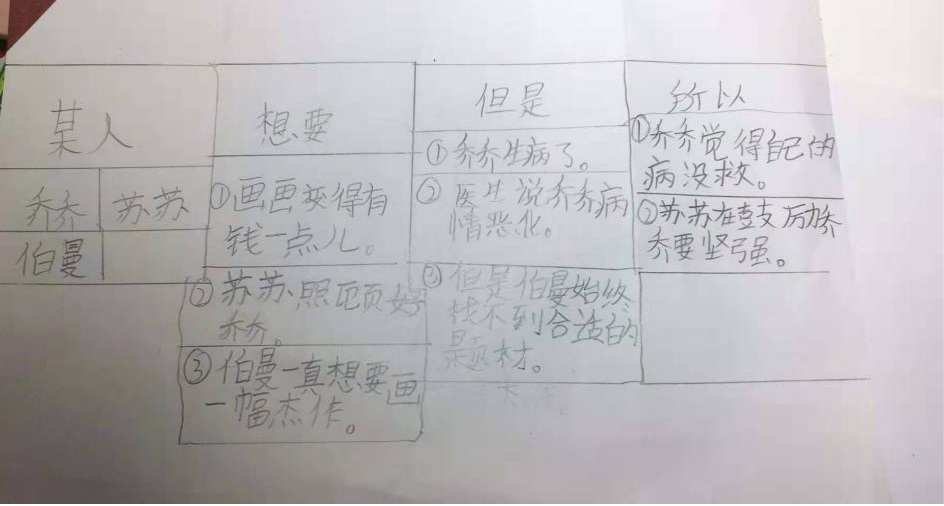 某人
想要
但是
所以
乔乔
苏苏
伯曼
①画画变得有
钱一点儿。
②苏苏照顾好
乔乔。
③伯曼一真想要画
一幅杰作。
①乔乔生病了。
②医生说乔乔病
情恶化。
③但是伯曼始终
找不到合适的
题材。
①乔乔觉得自己的
病没救。
②苏苏在鼓励乔
乔要坚强。